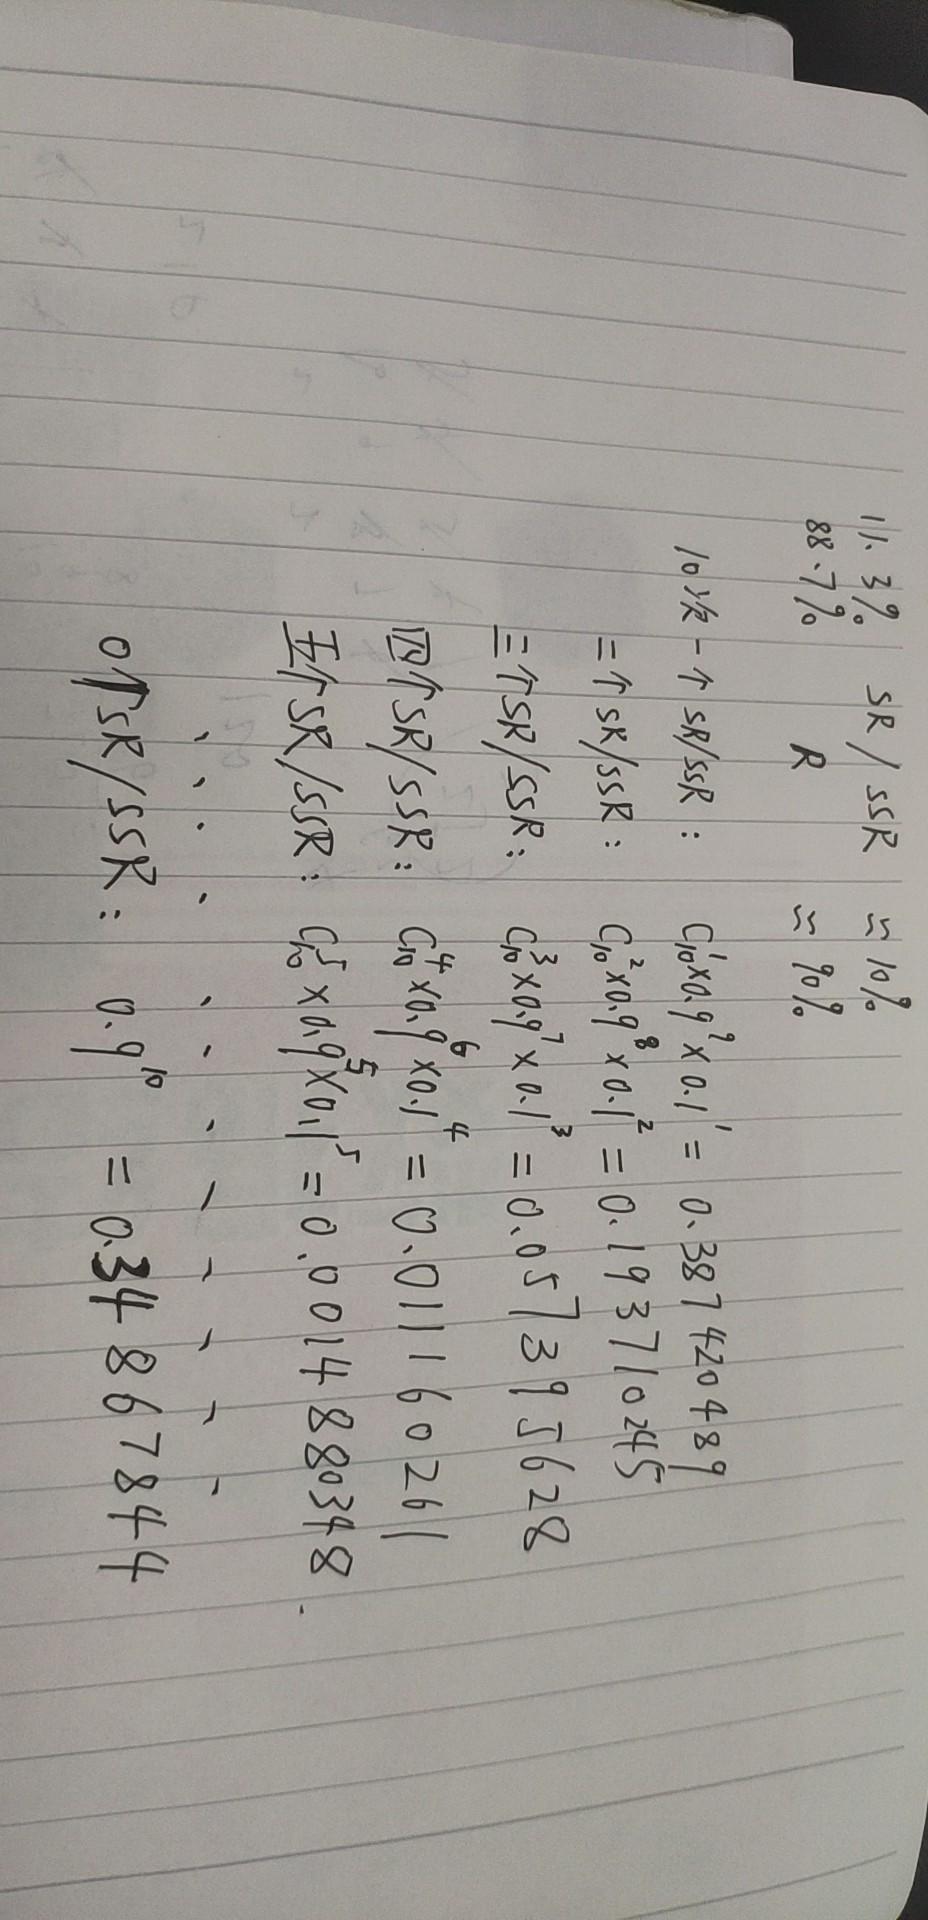 11.3% SR/SSR ≈10%
88.7% R ≈90%
10次 一个SR/SSR: C₁₀¹×0.9⁹×0.1¹=0.387420489
二个SR/SSR: C₁₀²×0.9⁸×0.1²=0.193710245
三个SR/SSR: C₁₀³×0.9⁷×0.1³=0.057395628
四个SR/SSR: C₁₀⁴×0.9⁶×0.1⁴=0.011160261
五个SR/SSR: C₁₀⁵×0.9⁵×0.1⁵=0.0014880348
0个SR/SSR: 0.9¹⁰=0.34867844